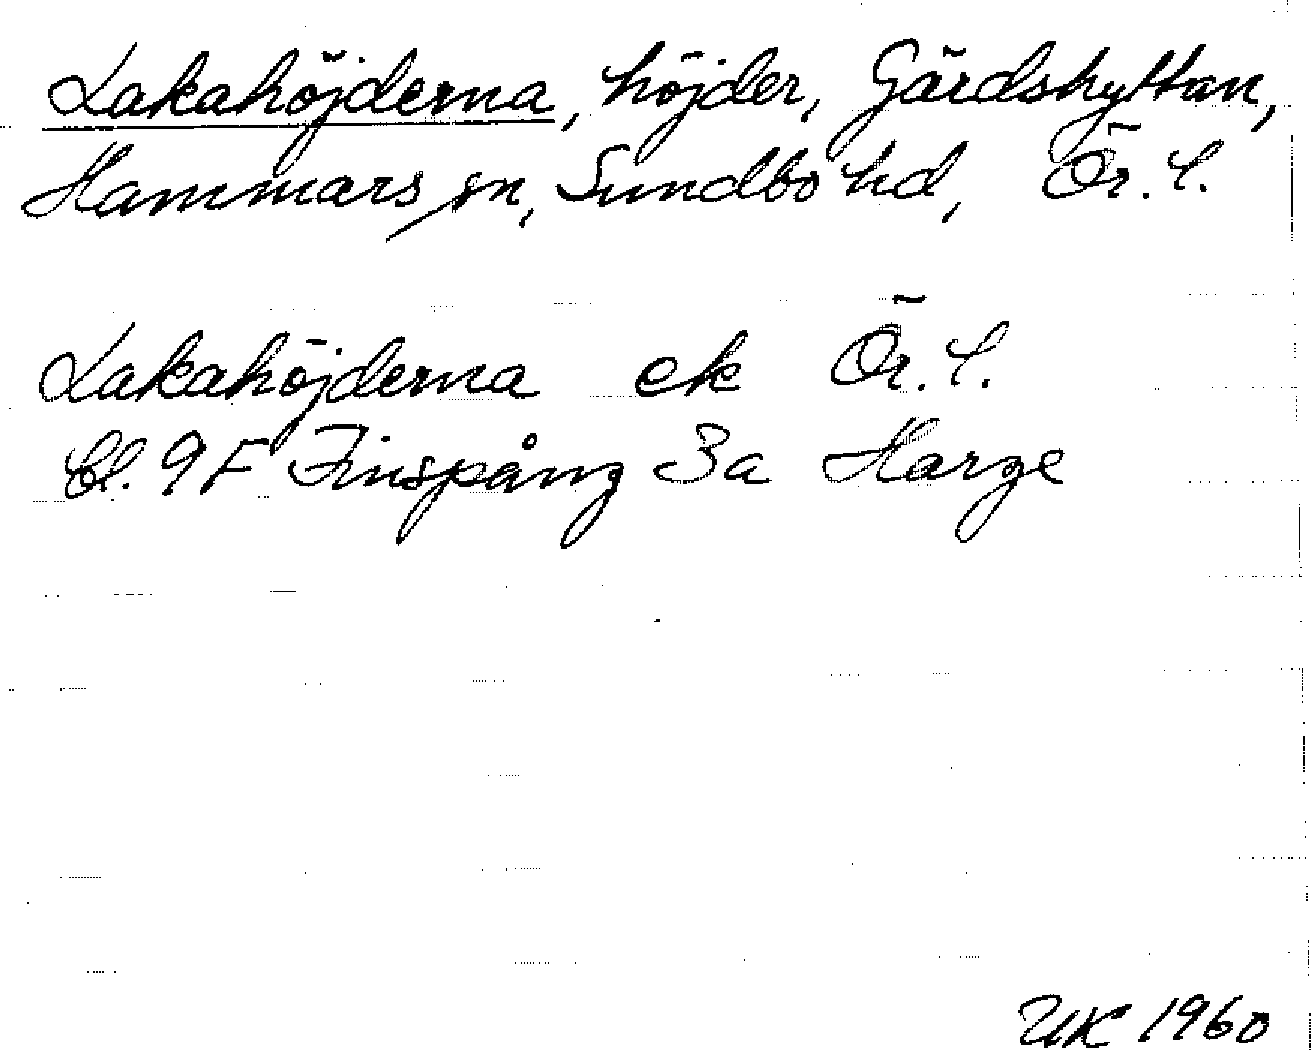 Lakahöjderna, höjder, Gärdshyttan,
Hammars sn, Sundbo hd, Ör. l.
Lakahöjderna ek Ör. l.
Bl. 9F Finspång 3a Harge
UK 1960